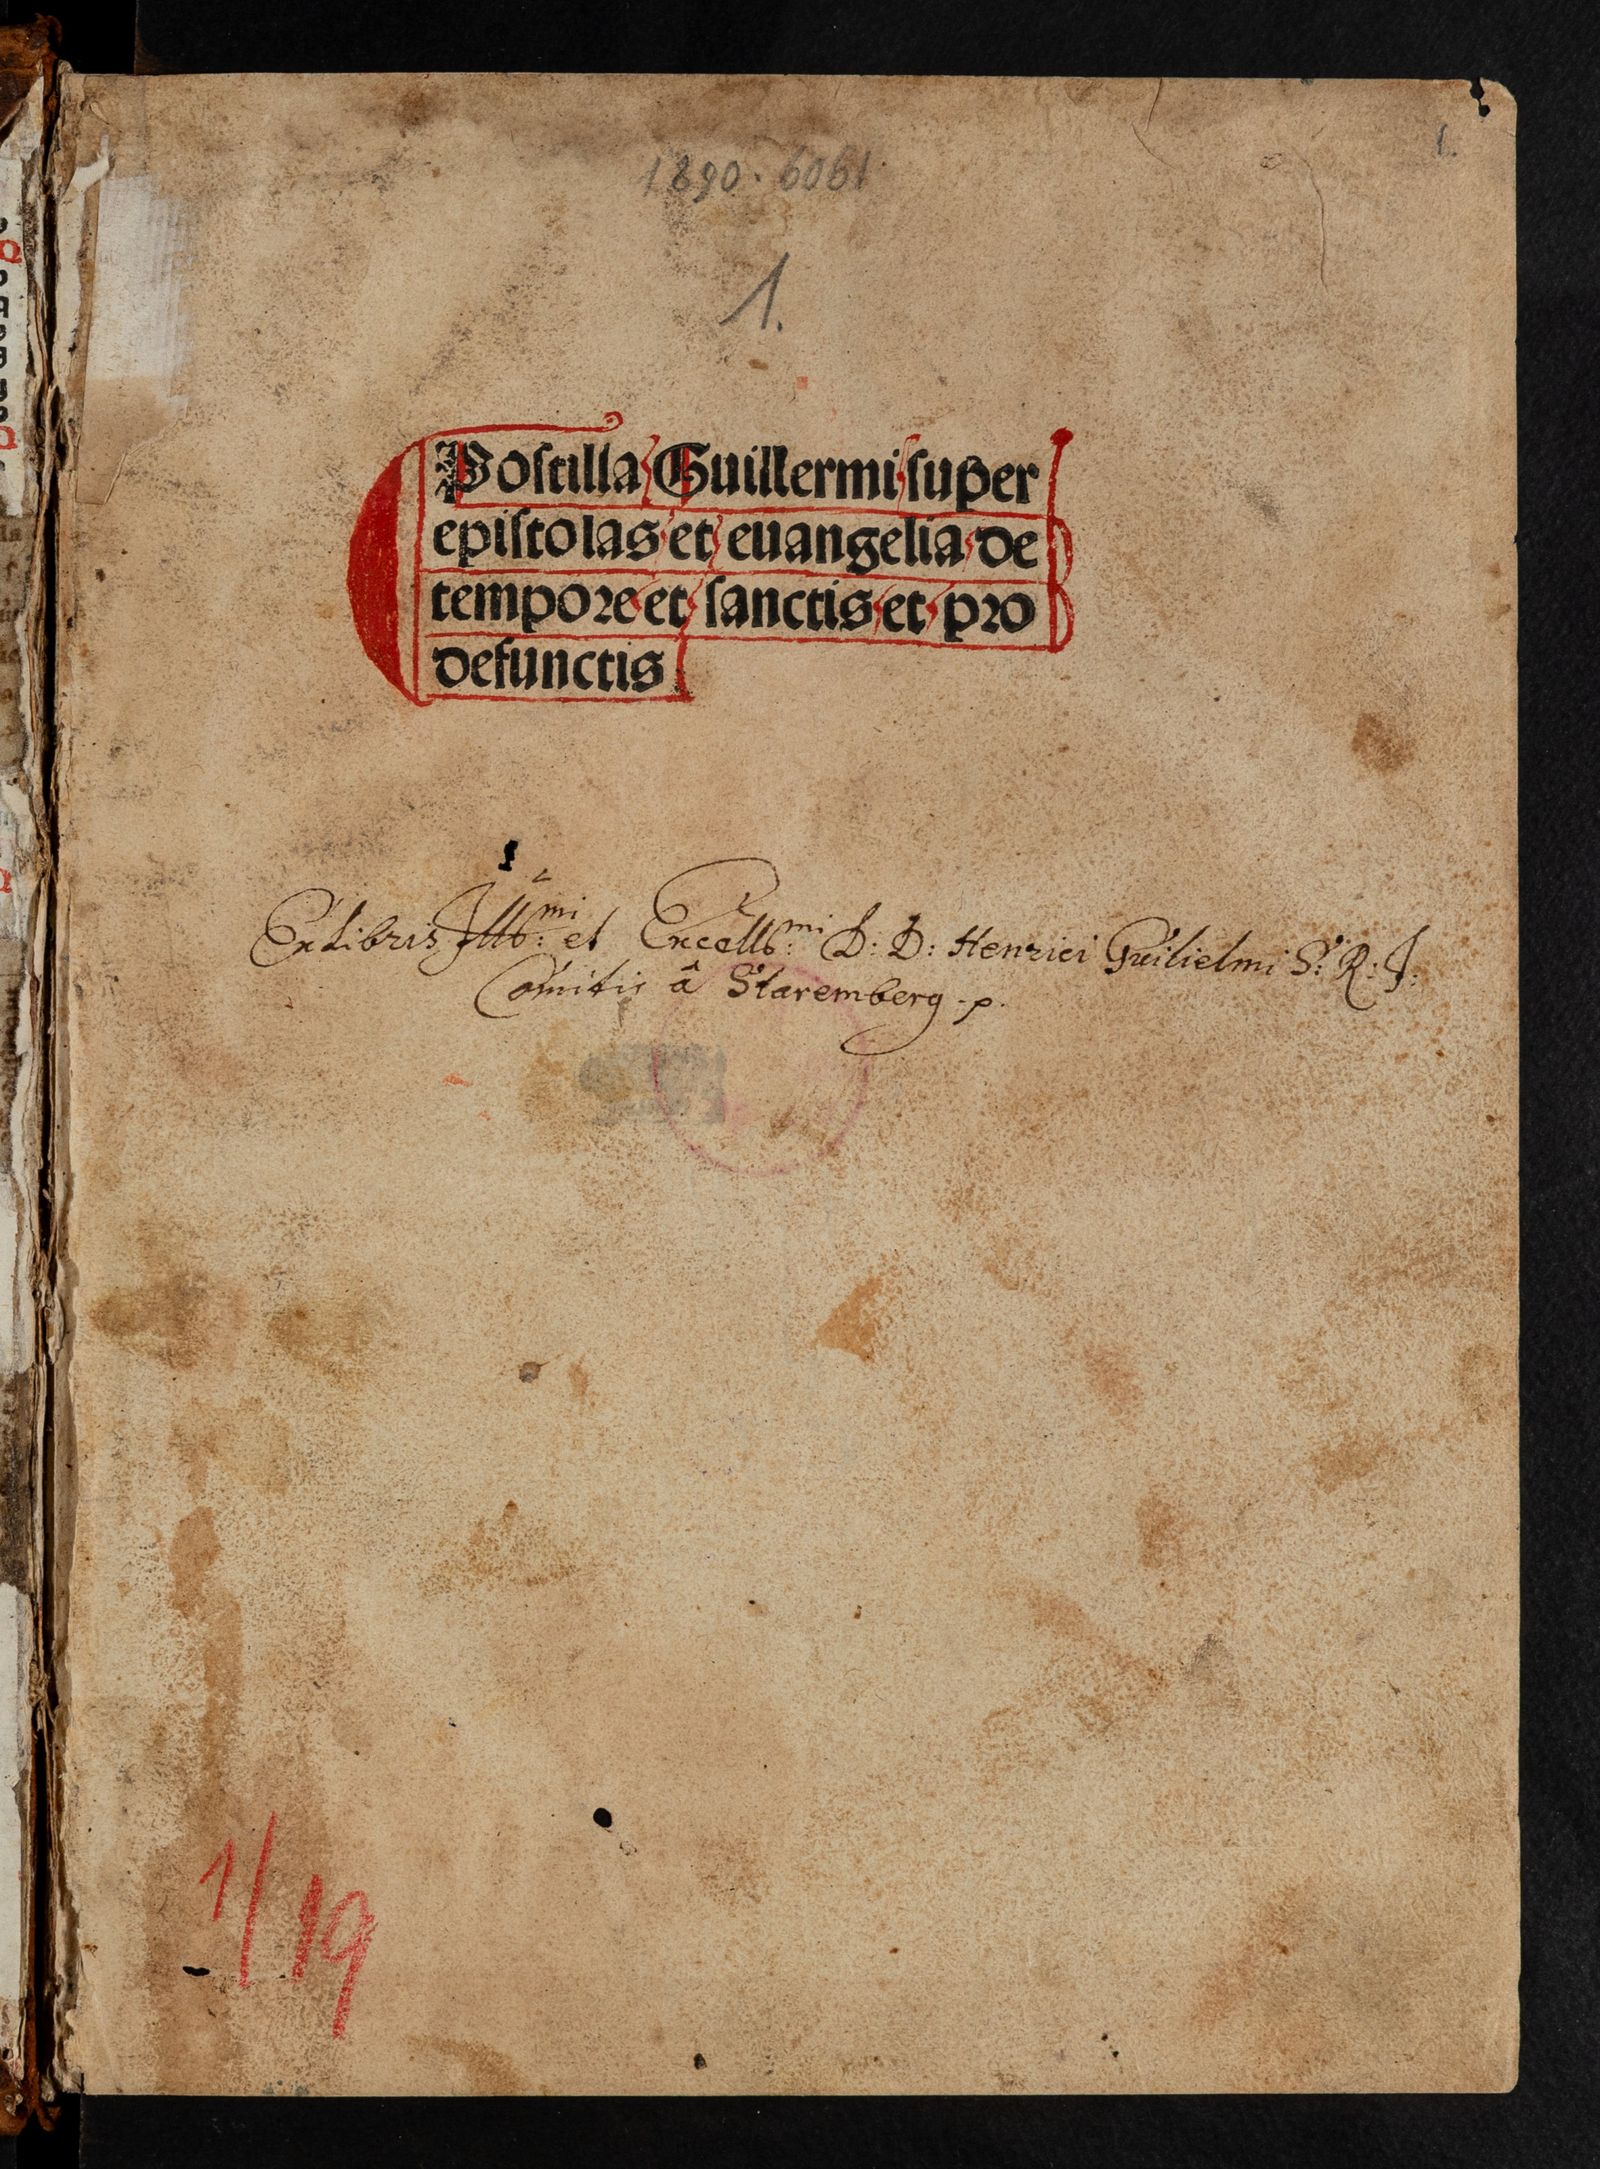 1.
1890.6061
1.
Postilla Guillermi super
epistolas et euangelia de
tempore et sanctis et pro
defunctis
Ex Libris Illb:mi et Excellb:mi D: D: Henrici Guilielmi S: R: I:
Comitis â Staremberg p.
1/19